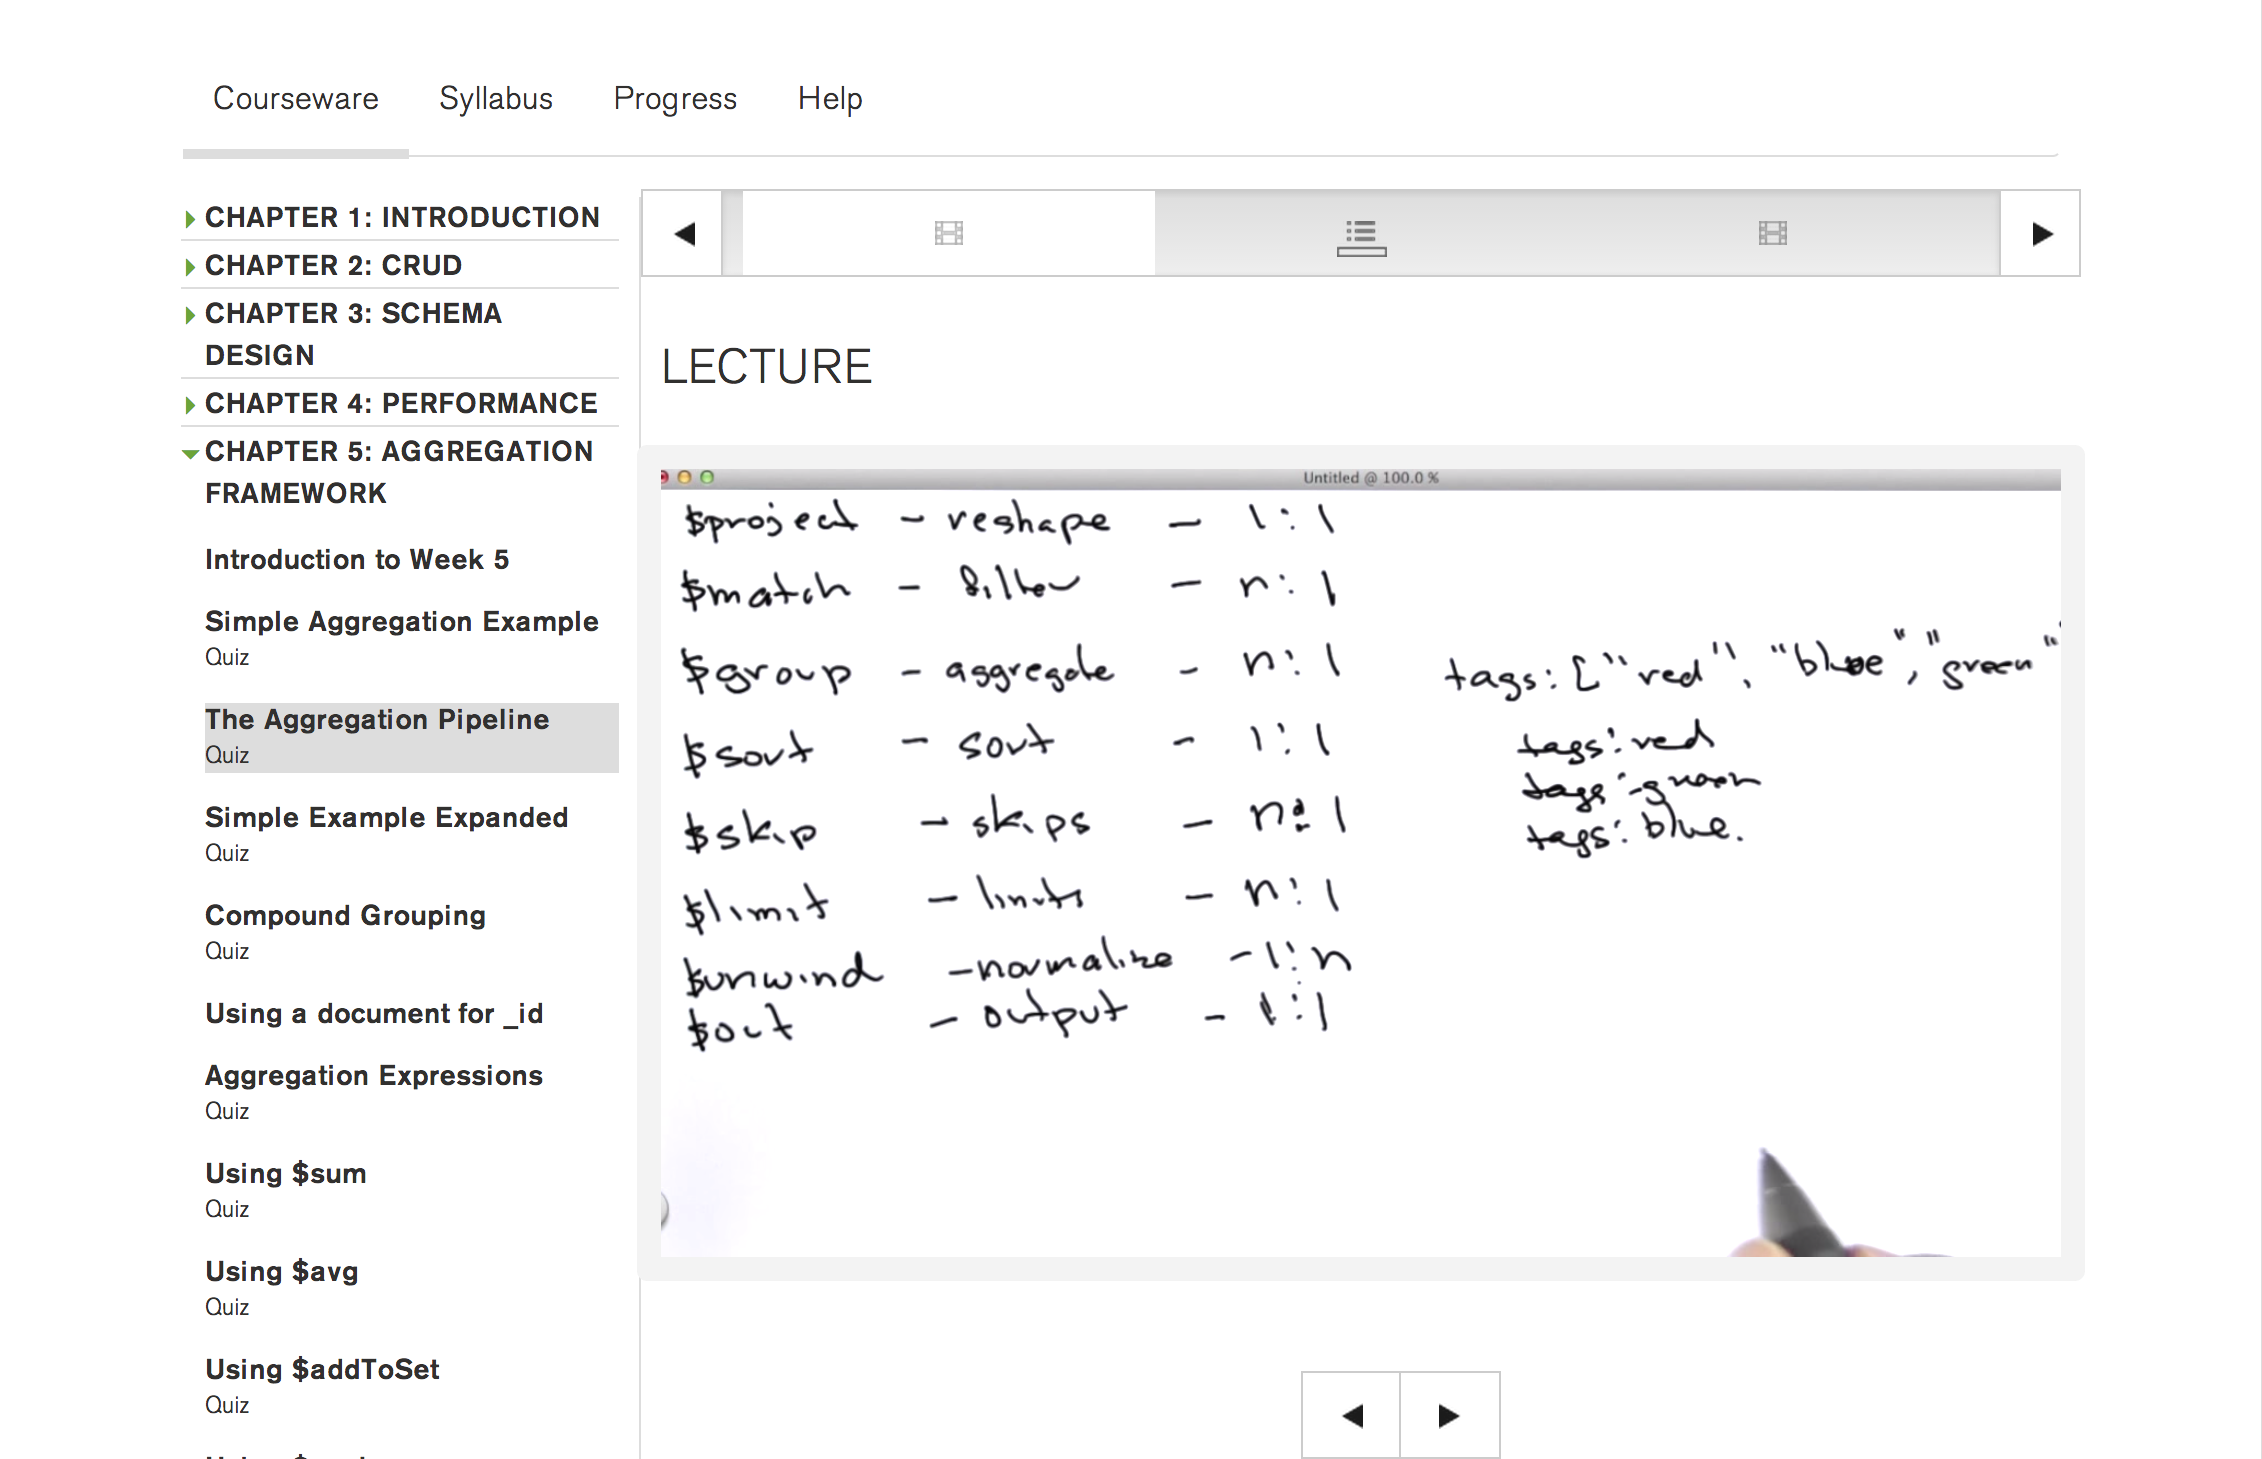 Courseware Syllabus Progress Help
CHAPTER 1: INTRODUCTION
CHAPTER 2: CRUD
CHAPTER 3: SCHEMA
DESIGN
CHAPTER 4: PERFORMANCE
CHAPTER 5: AGGREGATION
FRAMEWORK
Introduction to Week 5
Simple Aggregation Example
Quiz
The Aggregation Pipeline
Quiz
Simple Example Expanded
Quiz
Compound Grouping
Quiz
Using a document for _id
Aggregation Expressions
Quiz
Using $sum
Quiz
Using $avg
Quiz
Using $addToSet
Quiz
LECTURE
Untitled @ 100.0 %
$project - reshape - 1:1
$match - filter - n:1
$group - aggregate - n:1
$sort - sort - 1:1
$skip - skips - n:1
$limit - limits - n:1
$unwind - normalize - 1:n
$out - output - 1:1
tags: ["red", "blue", "green"
tags: red
tags: green
tags: blue.